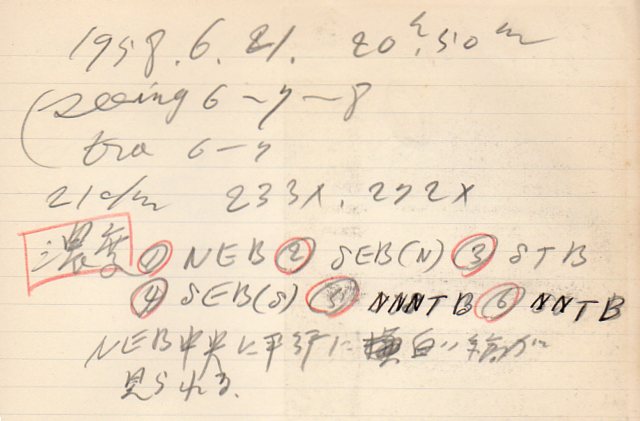 1958.6.21. 20h50m
(seeing 6-7-8
tra 6-7
21cm 233x, 272x
濃度 ① NEB ② SEB(N) ③ STB
④ SEB(S) ⑤ NNNTB ⑥ NNTB
NEB中央に平行に 白い線が
見られる.